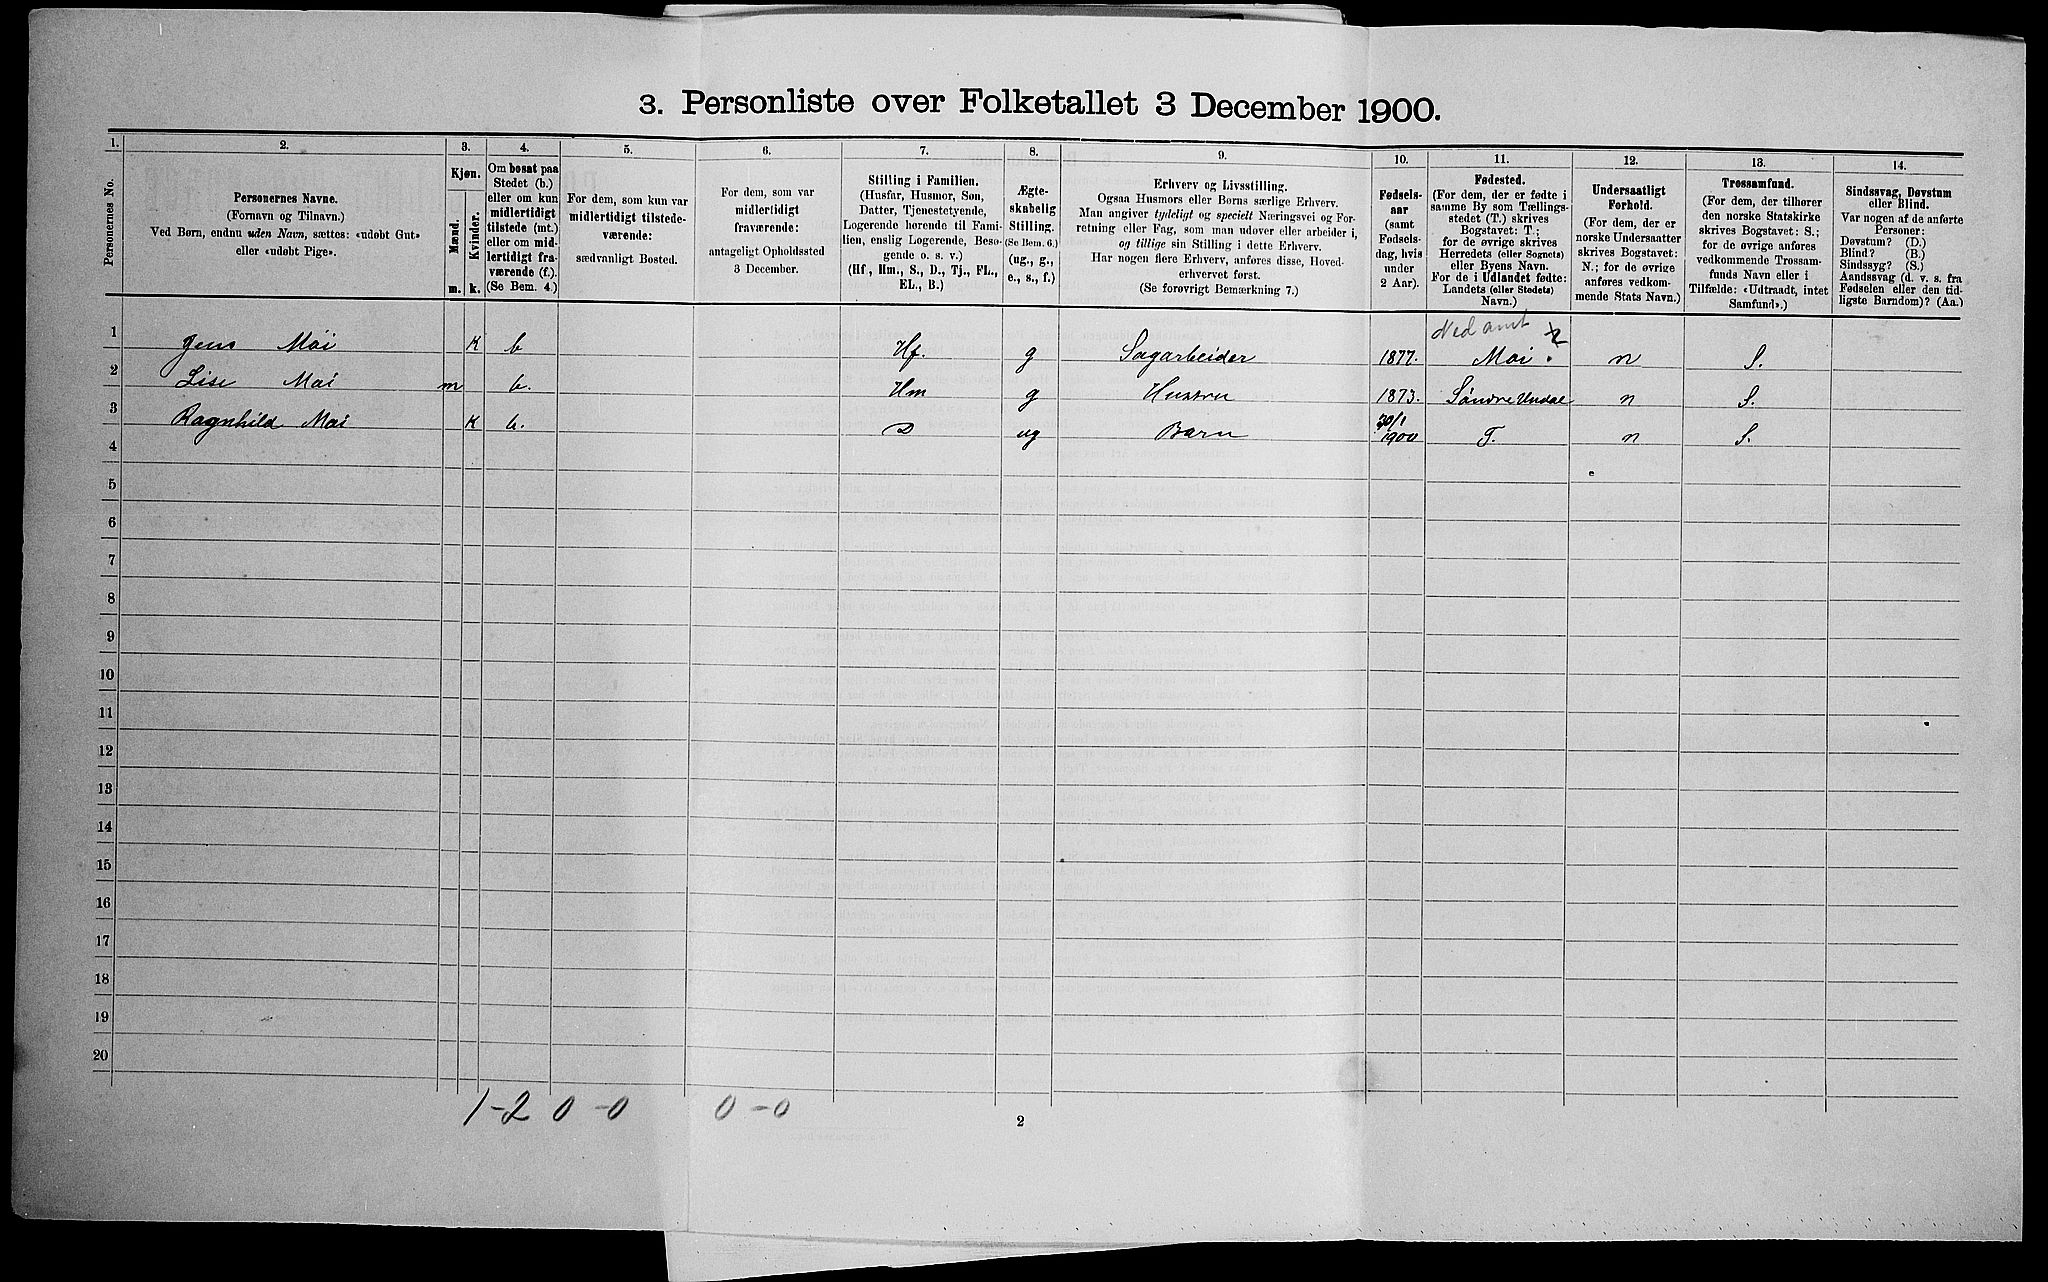 3. Personliste over Folketallet 3 December 1900.
1. 2. 3. 4. 5. 6. 7. 8. 9. 10. 11. 12. 13. 14.
Personernes No.
Personernes Navne.
(Fornavn og Tilnavn.)
Ved Børn, endnu uden Navn, sættes: «udøbt Gut»
eller «udøbt Pige».
Kjøn.
Mænd.
Kvinder.
m. k.
Om bosat paa
Stedet (b.)
eller om kun
midlertidigt
tilstede (mt.)
eller om mid-
lertidigt fra-
værende (f.).
(Se Bem. 4.)
For dem, som kun var
midlertidigt tilstede-
værende:
sædvanligt Bosted.
For dem, som var
midlertidigt
fraværende:
antageligt Opholdssted
3 December.
Stilling i Familien.
(Husfar, Husmor, Søn,
Datter, Tjenestetyende,
Logerende hørende til Fami-
lien, enslig Logerende, Besø-
gende o. s. v.)
(Hf., Hm., S., D., Tj., FL.,
EL., B.)
Ægte-
skabelig
Stilling.
(Se Bem. 6.)
(ug., g.,
e., s., f.)
Erhverv og Livsstilling.
Ogsaa Husmors eller Børns særlige Erhverv.
Man angiver tydeligt og specielt Næringsvei og For-
retning eller Fag, som man udøver eller arbeider i,
og tillige sin Stilling i dette Erhverv.
Har nogen flere Erhverv, anføres disse, Hoved-
erhvervet først.
(Se forøvrigt Bemærkning 7.)
Fødsels-
aar
(samt
Fødsels-
dag, hvis
under
2 Aar).
Fødested.
(For dem, der er fødte i
samme By som Tællings-
stedet (T.) skrives
Bogstavet: T.;
for de øvrige skrives
Herredets (eller Sognets)
eller Byens Navn.
For de i Udlandet fødte:
Landets (eller Stedets)
Navn.)
Undersaatligt
Forhold.
(For dem, der er
norske Undersaatter
skrives Bogstavet:
N.; for de øvrige
anføres vedkom-
mende Stats Navn.)
Trossamfund.
(For dem, der tilhører
den norske Statskirke
skrives Bogstavet: S.;
for de øvrige anføres
vedkommende Trossam-
funds Navn eller i
Tilfælde: «Udtraadt, intet
Samfund».)
Sindssvag, Døvstum
eller Blind.
Var nogen af de anførte
Personer:
Døvstum? (D.)
Blind? (B.)
Sindssyg? (S.)
Aandssvag (d. v. s. fra
Fødselen eller den tid-
ligste Barndom)? (Aa.)
Ned amt
1 Jens Moi K b Hf. g Sagarbeider 1877. Moi. n S.
2 Lise Moi m b. Hm g Hustru 1873. Søndre Undal n S.
30/1
3 Ragnhild Moi K b. D ug Barn 1900 T. n S.
4
5
6
7
8
9
10
11
12
13
14
15
16
17
18
19
20
1-2 0-0 0-0
2